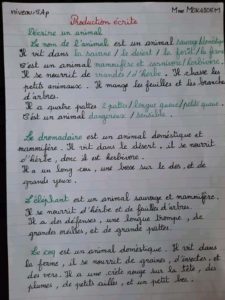 niveau: 5Ap Mme MEKACEM
Production écrite
Décrire un animal
Le nom de l'animal est un animal sauvage/domestique
Il vit dans la savane / le désert / la forêt / la ferme
C'est un animal mammifère et carnivore/herbivore.
Il se nourrit de viandes / d'herbe. Il chasse les
petits animaux. Il mange les feuilles et les branches
d'arbres.
Il a quatre pattes / longue queue / petite queue.
C'est un animal dangereux / sensible.
Le dromadaire est un animal domestique et
mammifère. Il vit dans le désert, il se nourrit
d'herbe, donc il est herbivore.
Il a un long cou, une bosse sur le dos, et de
grands yeux.
L'éléphant est un animal sauvage et mammifère.
Il se nourrit d'herbe et de feuilles d'arbres.
Il a des défenses, une longue trompe, de
grandes oreilles, et de grande pattes.
Le coq est un animal domestique. Il vit dans
la ferme, il se nourrit de graines, d'insectes, et
des vers. Il a une crête rouge sur la tête, des
plumes, de petits ailes, et un petit bec.